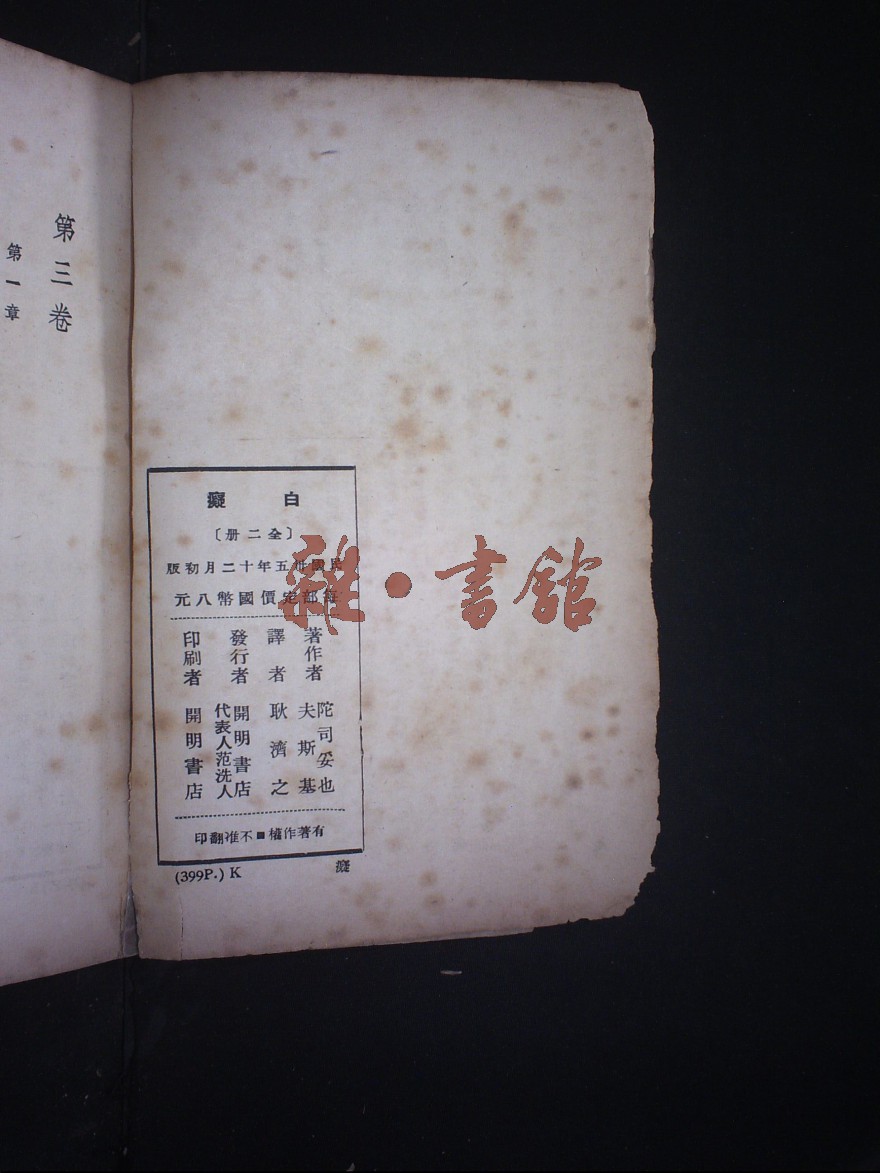 白癡
〔全二册〕
民國卅五年十二月初版
每部定價國幣八元
著作者 陀司妥也夫斯基
譯者 耿濟之
發行者 開明書店 代表人范洗人
印刷者 開明書店
有著作權■不准翻印
(399P.) K 癡
第三卷
第一章
雜·書館